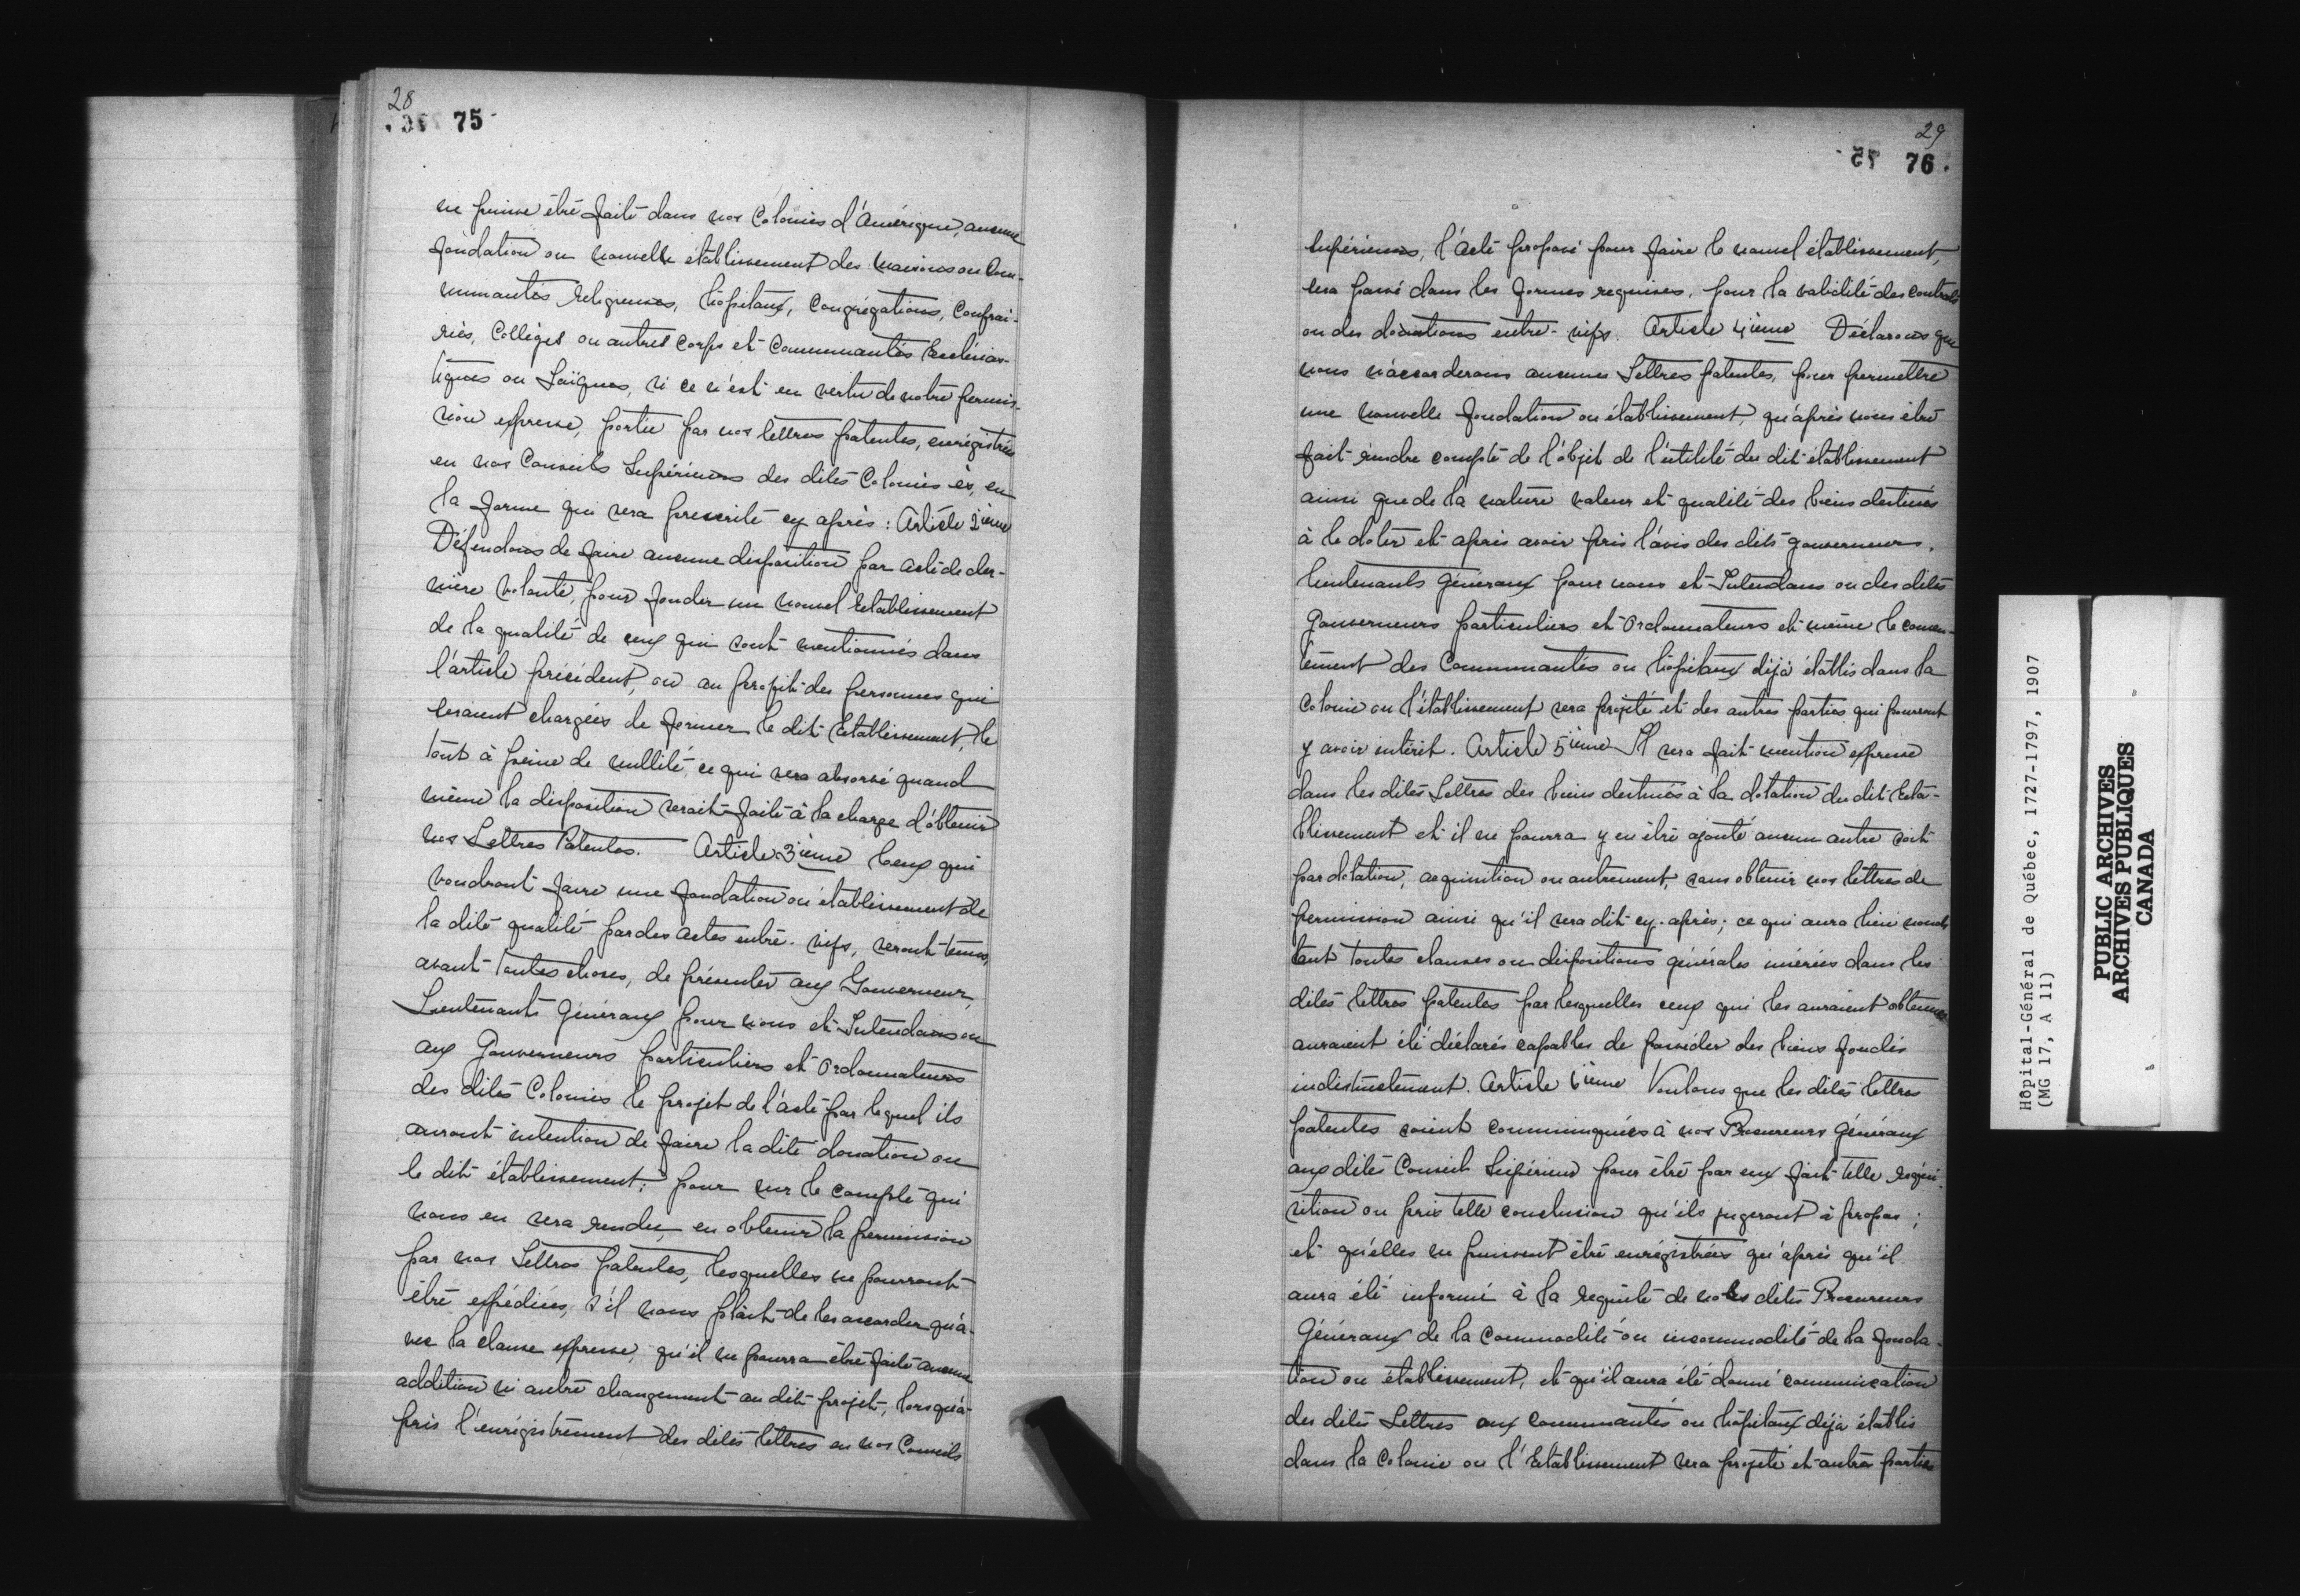 28
75
ne puisse être faite dans nos Colonies d'Amérique, aucune
fondation ou nouvelle établissement des maisons ou Com-
munautés religieuses, hôpitaux, Congrégations, Confrai-
ries, Collèges ou autres Corps et Communautés Ecclésias-
tiques ou Laïques, si ce n'est en vertu de notre permis-
sion expresse, portée par nos lettres patentes, enrégistrées
en nos Conseils Supérieurs des dites Colonies ès, en
la forme qui sera prescrite cy après : Article 2ième
Défendons de faire aucune disposition par acte de der-
nière volonté, pour fonder un nouvel Etablissement
de la qualité de ceux qui sont mentionnés dans
l'article précédent, ou au profit des personnes qui
seraient chargées de former le dit Etablissement, le
tout à peine de nullité, ce qui sera absorvé quand
même la disposition serait faite à la charge d'obtenir
nos Lettres Patentes. Article 3ième Ceux qui
voudront faire une fondation ou établissement de
la dite qualité par des actes entre-vifs, seront tenus,
avant toutes choses, de présenter aux Gouverneur,
Lieutenants Généraux pour nous et Intendans ou
aux Gouverneurs particuliers et Ordonnateurs
des dites Colonies le projet de l'acte par lequel ils
auront intention de faire la dite donation ou
le dit établissement; pour sur le compte qui
nous en sera rendu, en obtenir la permission
par nos Lettres patentes, lesquelles ne pourront
être expédiées, s'il nous plait de les accorder qu'a-
vec la clause expresse, qu'il ne pourra être faite aucune
addition ni autre changement au dit projet, lorsqu'a-
près l'enrégistrement des dites lettres en nos Conseils
29
76
supérieurs, l'Acte proposé pour faire le nouvel établissement,
sera passé dans les formes requises, pour la validité des contrats
ou des donations entre-vifs. Article 4ième Déclarons que
nous n'accorderons aucunes Lettres patentes, pour permettre
une nouvelle fondation ou établissement, qu'après nous être
fait rendre compte de l'objet de l'utilité du dit établissement
ainsi que de la nature valeur et qualité des biens destinés
à le doter et après avoir pris l'avis des dits gouverneurs,
lieutenants généraux pour nous et Intendans ou des dites
Gouverneurs particuliers et Ordonnateurs et même le consen-
tement des Communautés ou hôpitaux déjà établis dans la
Colonie ou l'établissement sera projeté et des autres parties qui pourront
y avoir intérêt. Article 5ième Il sera fait mention expresse
dans les dites Lettres des biens destinés à la dotation du dit Eta-
blissement et il ne pourra y en être ajouté aucun autre soit
par dotation, acquisition ou autrement, sans obtenir nos lettres de
permission ainsi qu'il sera dit cy-après; ce qui aura lieu nonobs
tant toutes clauses ou dispositions générales insérées dans les
dites lettres patentes par lesquelles ceux qui les auraient obtenues
auraient été déclarés capables de posséder des biens fondés
indistinctement. Article 6ième Voulons que les dites lettres
patentes soient communiquées à nos Procureurs Généraux
aux dites Conseils Supérieurs pour être par eux fait telle réqui-
sition ou pris telle conclusion qu'ils jugeront à propos;
et qu'elles ne puissent être enrégistrées qu'après qu'il
aura été informé à la requête de nos dites Procureurs
Généraux de la commodité ou incommodité de la fonda-
tion ou établissement, et qu'il aura été donné communication
des dites Lettres aux communautés ou hôpitaux déjà établis
dans la Colonie ou l'Etablissement sera projeté et autres parties
Hôpital-Général de Québec, 1727-1797, 1907
(MG 17, A 11)
PUBLIC ARCHIVES
ARCHIVES PUBLIQUES
CANADA